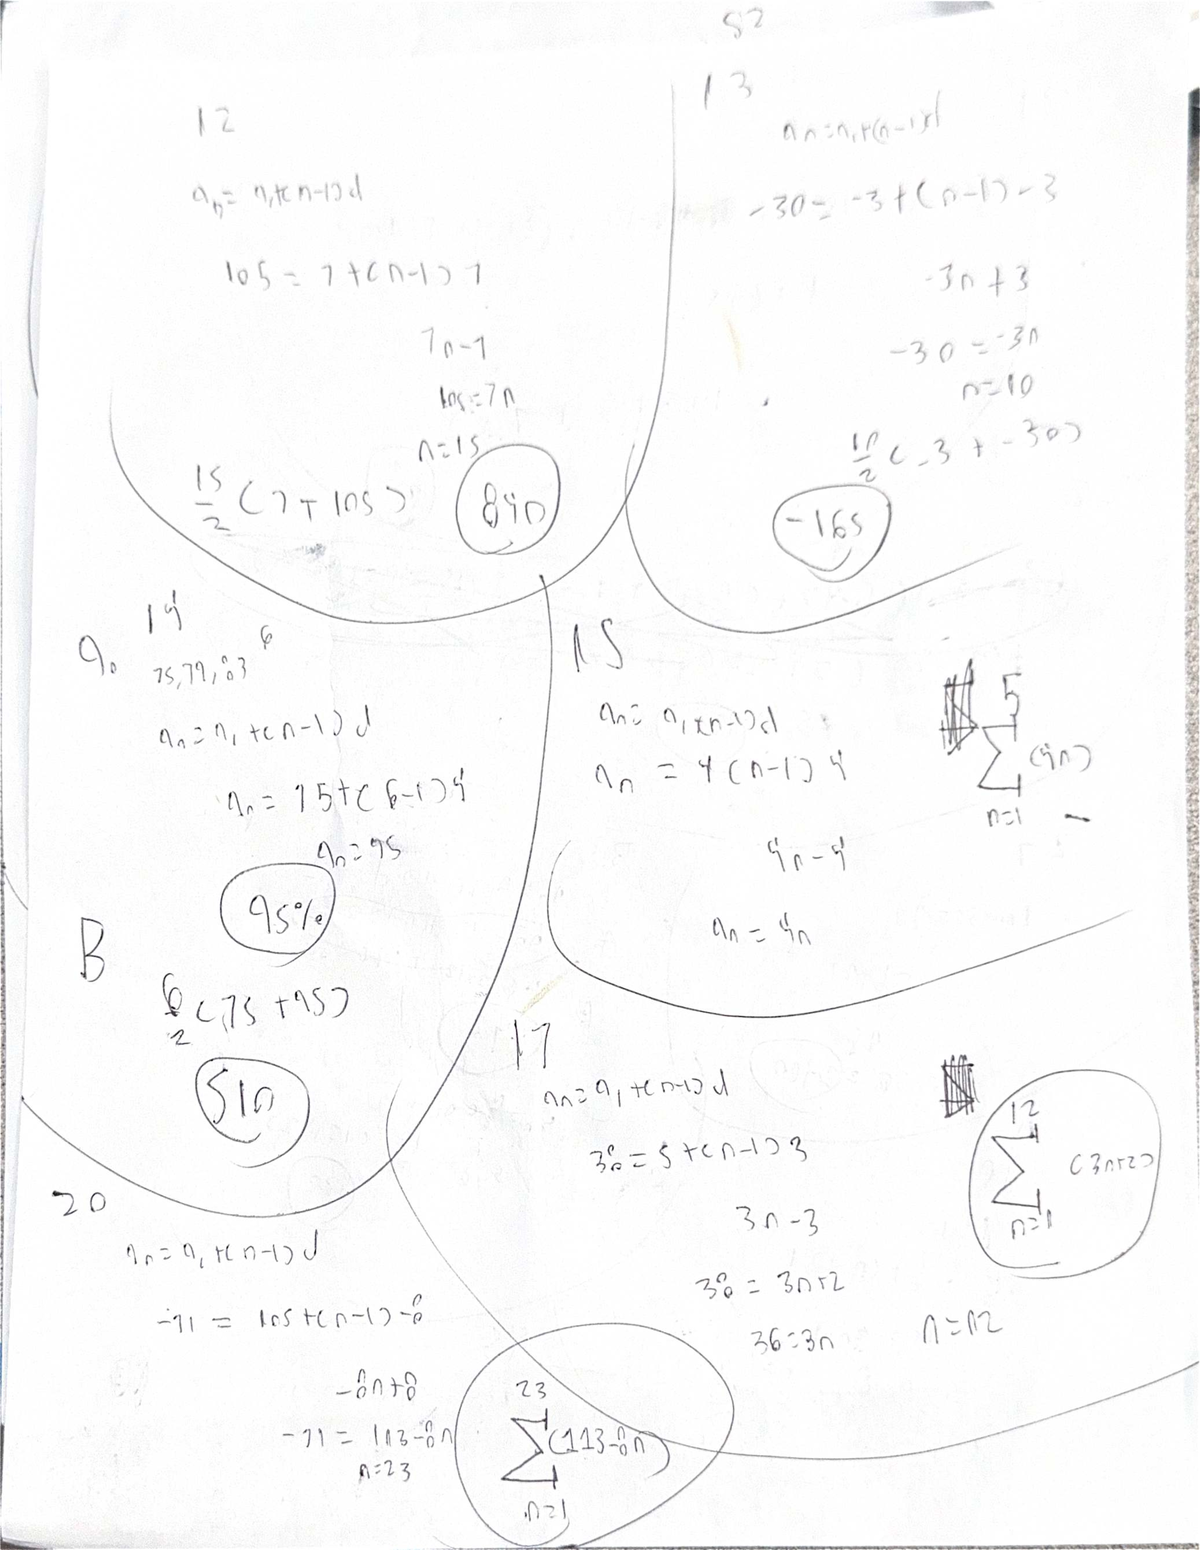 52
12
aₙ = a₁+(n-1)d
105 = 7+(n-1)7
7n-7
105=7n
n=15
15/2 (7+105)
840
13
aₙ=a₁+(n-1)d
-30= -3+(n-1)-3
-3n+3
-30=-3n
n=10
10/2 (-3+-30)
-165
14
a.
75,79,83 6
aₙ=a₁+(n-1)d
aₙ=75+(6-1)4
aₙ=95
95%
B
6/2 (75+95)
510
15
aₙ= a₁+(n-1)d
aₙ = 4(n-1)4
4n-4
aₙ=4n
5
Σ (4n)
n=1
17
aₙ=a₁+(n-1)d
38=5+(n-1)3
3n-3
38=3n+2
36=3n
n=12
12
Σ (3n+2)
n=1
20
aₙ=a₁+(n-1)d
-71 = 105+(n-1)-8
-8n+8
-71=113-8n
n=23
23
Σ(113-8n)
n=1